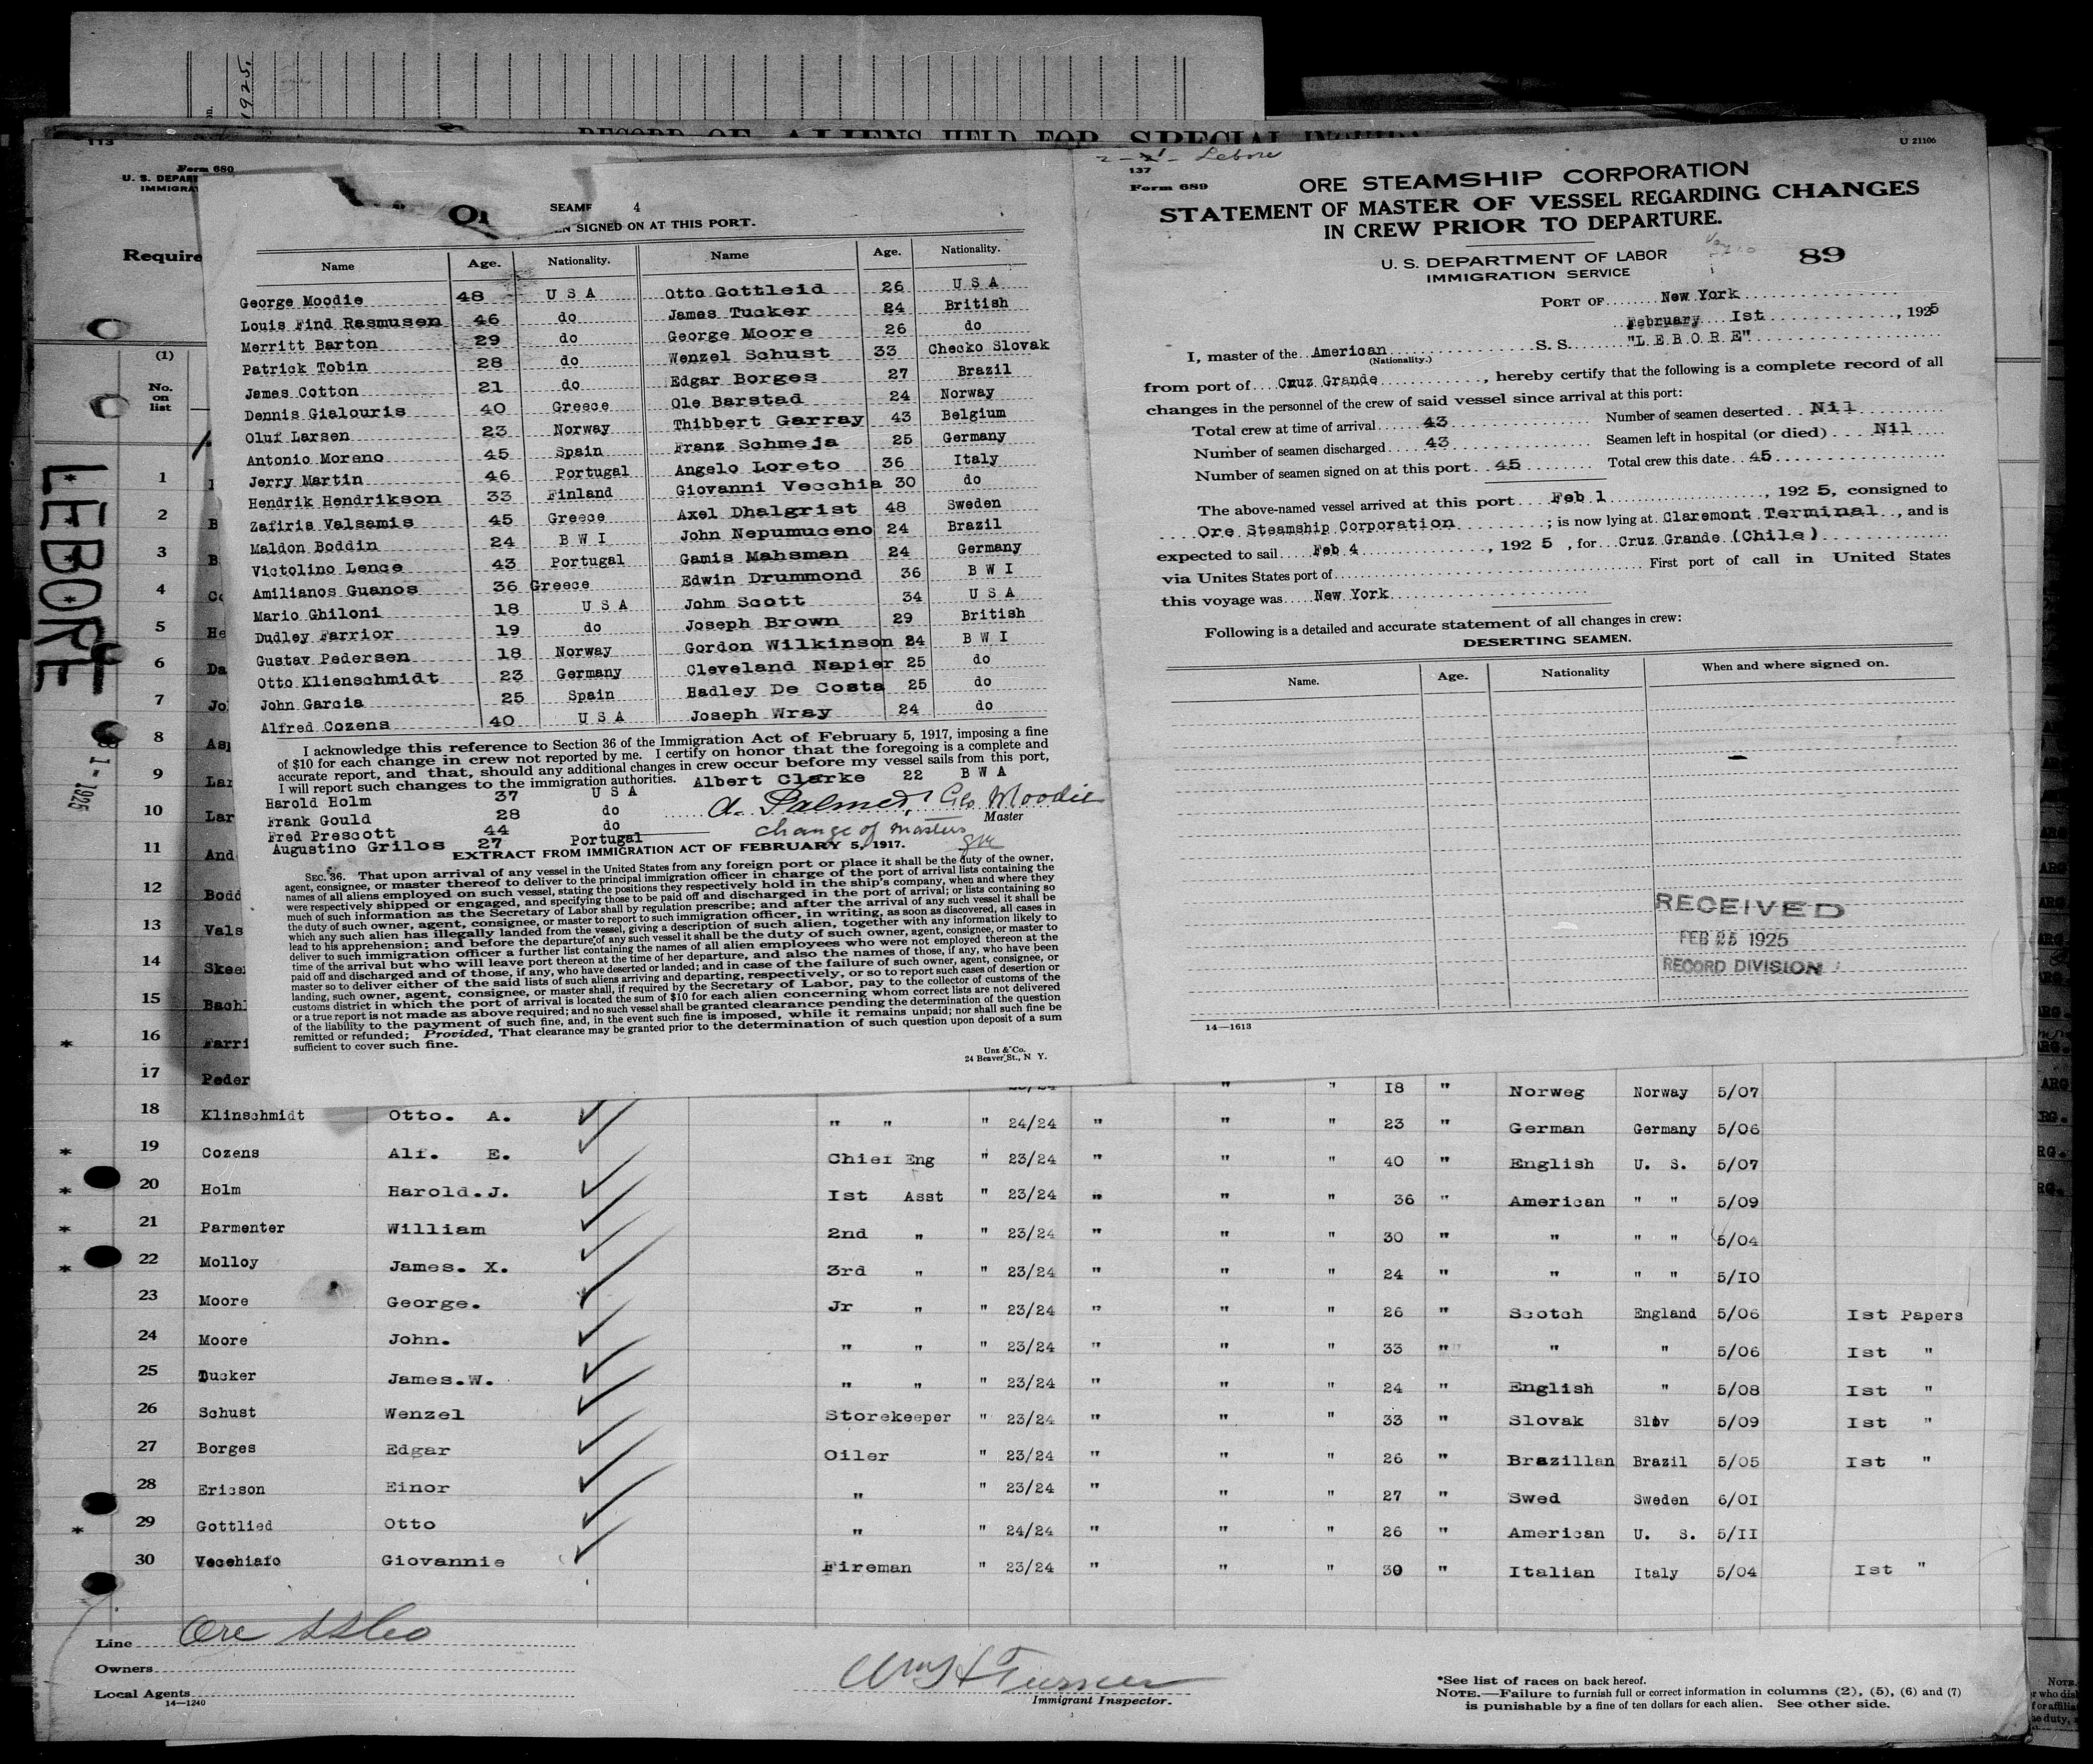 1925.
on.
RECORD OF ALIENS HELD FOR SPECIAL INQUIRY
113
Form 680
U. S. DEPAR
IMMIGRA
Require
(1)
No.
on
list
LEBORE
1-1925
SEAME 4
EN SIGNED ON AT THIS PORT.
Name Age. Nationality. Name Age. Nationality.
George Moodie 48 U S A Otto Gottleid 26 U S A
Louis Find Rasmusen 46 do James Tucker 24 British
Merritt Barton 29 do George Moore 26 do
Patrick Tobin 28 do Wenzel Schust 33 Checko Slovak
James Cotton 21 do Edgar Borges 27 Brazil
Dennis Gialouris 40 Greece Ole Barstad 24 Norway
Oluf Larsen 23 Norway Thibbert Garray 43 Belgium
Antonio Moreno 45 Spain Franz Schmeja 25 Germany
Jerry Martin 46 Portugal Angelo Loreto 36 Italy
Hendrik Hendrikson 33 Finland Giovanni Vecchia 30 do
Zafiris Valsamis 45 Greece Axel Dhalgrist 48 Sweden
Maldon Boddin 24 B W I John Nepumuceno 24 Brazil
Victolino Lence 43 Portugal Gamis Mahsman 24 Germany
Amilianos Guanos 36 Greece Edwin Drummond 36 B W I
Mario Ghiloni 18 U S A Johm Scott 34 U S A
Dudley Farrior 19 do Joseph Brown 29 British
Gustav Pedersen 18 Norway Gordon Wilkinson 24 B W I
Otto Klienschmidt 23 Germany Cleveland Napier 25 do
John Garcia 25 Spain Hadley De Costa 25 do
Alfred Cozens 40 U S A Joseph Wray 24 do
I acknowledge this reference to Section 36 of the Immigration Act of February 5, 1917, imposing a fine
of $10 for each change in crew not reported by me. I certify on honor that the foregoing is a complete and
accurate report, and that, should any additional changes in crew occur before my vessel sails from this port,
I will report such changes to the immigration authorities. Albert Clarke 22 B W A
Harold Holm 37 U S A
Frank Gould 28 do
Fred Prescott 44 do
Augustino Grilos 27 Portugal
A. Palmer, Geo Moodie
Master
change of masters
EXTRACT FROM IMMIGRATION ACT OF FEBRUARY 5, 1917.
SEC. 36. That upon arrival of any vessel in the United States from any foreign port or place it shall be the duty of the owner,
agent, consignee, or master thereof to deliver to the principal immigration officer in charge of the port of arrival lists containing the
names of all aliens employed on such vessel, stating the positions they respectively hold in the ship's company, when and where they
were respectively shipped or engaged, and specifying those to be paid off and discharged in the port of arrival; or lists containing so
much of such information as the Secretary of Labor shall by regulation prescribe; and after the arrival of any such vessel it shall be
the duty of such owner, agent, consignee, or master to report to such immigration officer, in writing, as soon as discovered, all cases in
which any such alien has illegally landed from the vessel, giving a description of such alien, together with any information likely to
lead to his apprehension; and before the departure of any such vessel it shall be the duty of such owner, agent, consignee, or master to
deliver to such immigration officer a further list containing the names of all alien employees who were not employed thereon at the
time of the arrival but who will leave port thereon at the time of her departure, and also the names of those, if any, who have been
paid off and discharged and of those, if any, who have deserted or landed; and in case of the failure of such owner, agent, consignee, or
master so to deliver either of the said lists of such aliens arriving and departing, respectively, or so to report such cases of desertion or
landing, such owner, agent, consignee, or master shall, if required by the Secretary of Labor, pay to the collector of customs of the
customs district in which the port of arrival is located the sum of $10 for each alien concerning whom correct lists are not delivered
or a true report is not made as above required; and no such vessel shall be granted clearance pending the determination of the question
of the liability to the payment of such fine, and, in the event such fine is imposed, while it remains unpaid; nor shall such fine be
remitted or refunded; Provided, That clearance may be granted prior to the determination of such question upon deposit of a sum
sufficient to cover such fine.
Unz & Co.
24 Beaver St., N Y.
Lebore
U 21106
137
Form 689
ORE STEAMSHIP CORPORATION
STATEMENT OF MASTER OF VESSEL REGARDING CHANGES
IN CREW PRIOR TO DEPARTURE.
U. S. DEPARTMENT OF LABOR
IMMIGRATION SERVICE
89
PORT OF New York
February Ist, 1925
I, master of the American S. S. "L E B O R E"
(Nationality.)
from port of Cruz Grande, hereby certify that the following is a complete record of all
changes in the personnel of the crew of said vessel since arrival at this port:
Total crew at time of arrival 43 Number of seamen deserted Nil
Number of seamen discharged 43 Seamen left in hospital (or died) Nil
Number of seamen signed on at this port 45 Total crew this date 45
The above-named vessel arrived at this port Feb 1, 192 5, consigned to
Ore Steamship Corporation; is now lying at Claremont Terminal, and is
expected to sail Feb 4, 192 5, for Cruz Grande (Chile)
via Unites States port of First port of call in United States
this voyage was New York
Following is a detailed and accurate statement of all changes in crew:
DESERTING SEAMEN.
Name. Age. Nationality When and where signed on.
RECEIVED
FEB 25 1925
RECORD DIVISION
14—1613
1
2 B
3 B
4 Co
5 He
6 Da
7 Jo
8 Asp
9 Lar
10 Lar
11 And
12 Bodd
13 Vals
14 Skee
15 Bach
* 16 Farri
17 Peder " " 18 " Norweg Norway 5/07
18 Klinschmidt Otto. A. " " " 24/24 " " " 23 " German Germany 5/06
* 19 Cozens Alf. E. Chief Eng " 23/24 " " " 40 " English U. S. 5/07
* 20 Holm Harold.J. Ist Asst " 23/24 " " " 36 " American " " 5/09
* 21 Parmenter William 2nd " " 23/24 " " " 30 " " " " 5/04
* 22 Molloy James. X. 3rd " " 23/24 " " " 24 " " " " 5/IO
23 Moore George. Jr " " 23/24 " " " 26 " Scotch England 5/06 Ist Papers
24 Moore John. " " " 23/24 " " " 33 " " " 5/06 Ist "
25 Tucker James.W. " " " 23/24 " " " 24 " English " 5/08 Ist "
26 Schust Wenzel Storekeeper " 23/24 " " " 33 " Slovak Slov 5/09 Ist "
27 Borges Edgar Oiler " 23/24 " " " 26 " Brazillan Brazil 5/05 Ist "
28 Ericson Einor " " 23/24 " " " 27 " Swed Sweden 6/0I
* 29 Gottlied Otto " " 24/24 " " " 26 " American U. S. 5/II
30 Vecehiafo Giovannie Fireman " 23/24 " " " 30 " Italian Italy 5/04 Ist "
Line Ore SS Co
Owners
Local Agents
14—1240
Wm H Turner
Immigrant Inspector.
*See list of races on back hereof.
NOTE.—Failure to furnish full or correct information in columns (2), (5), (6) and (7)
is punishable by a fine of ten dollars for each alien. See other side.